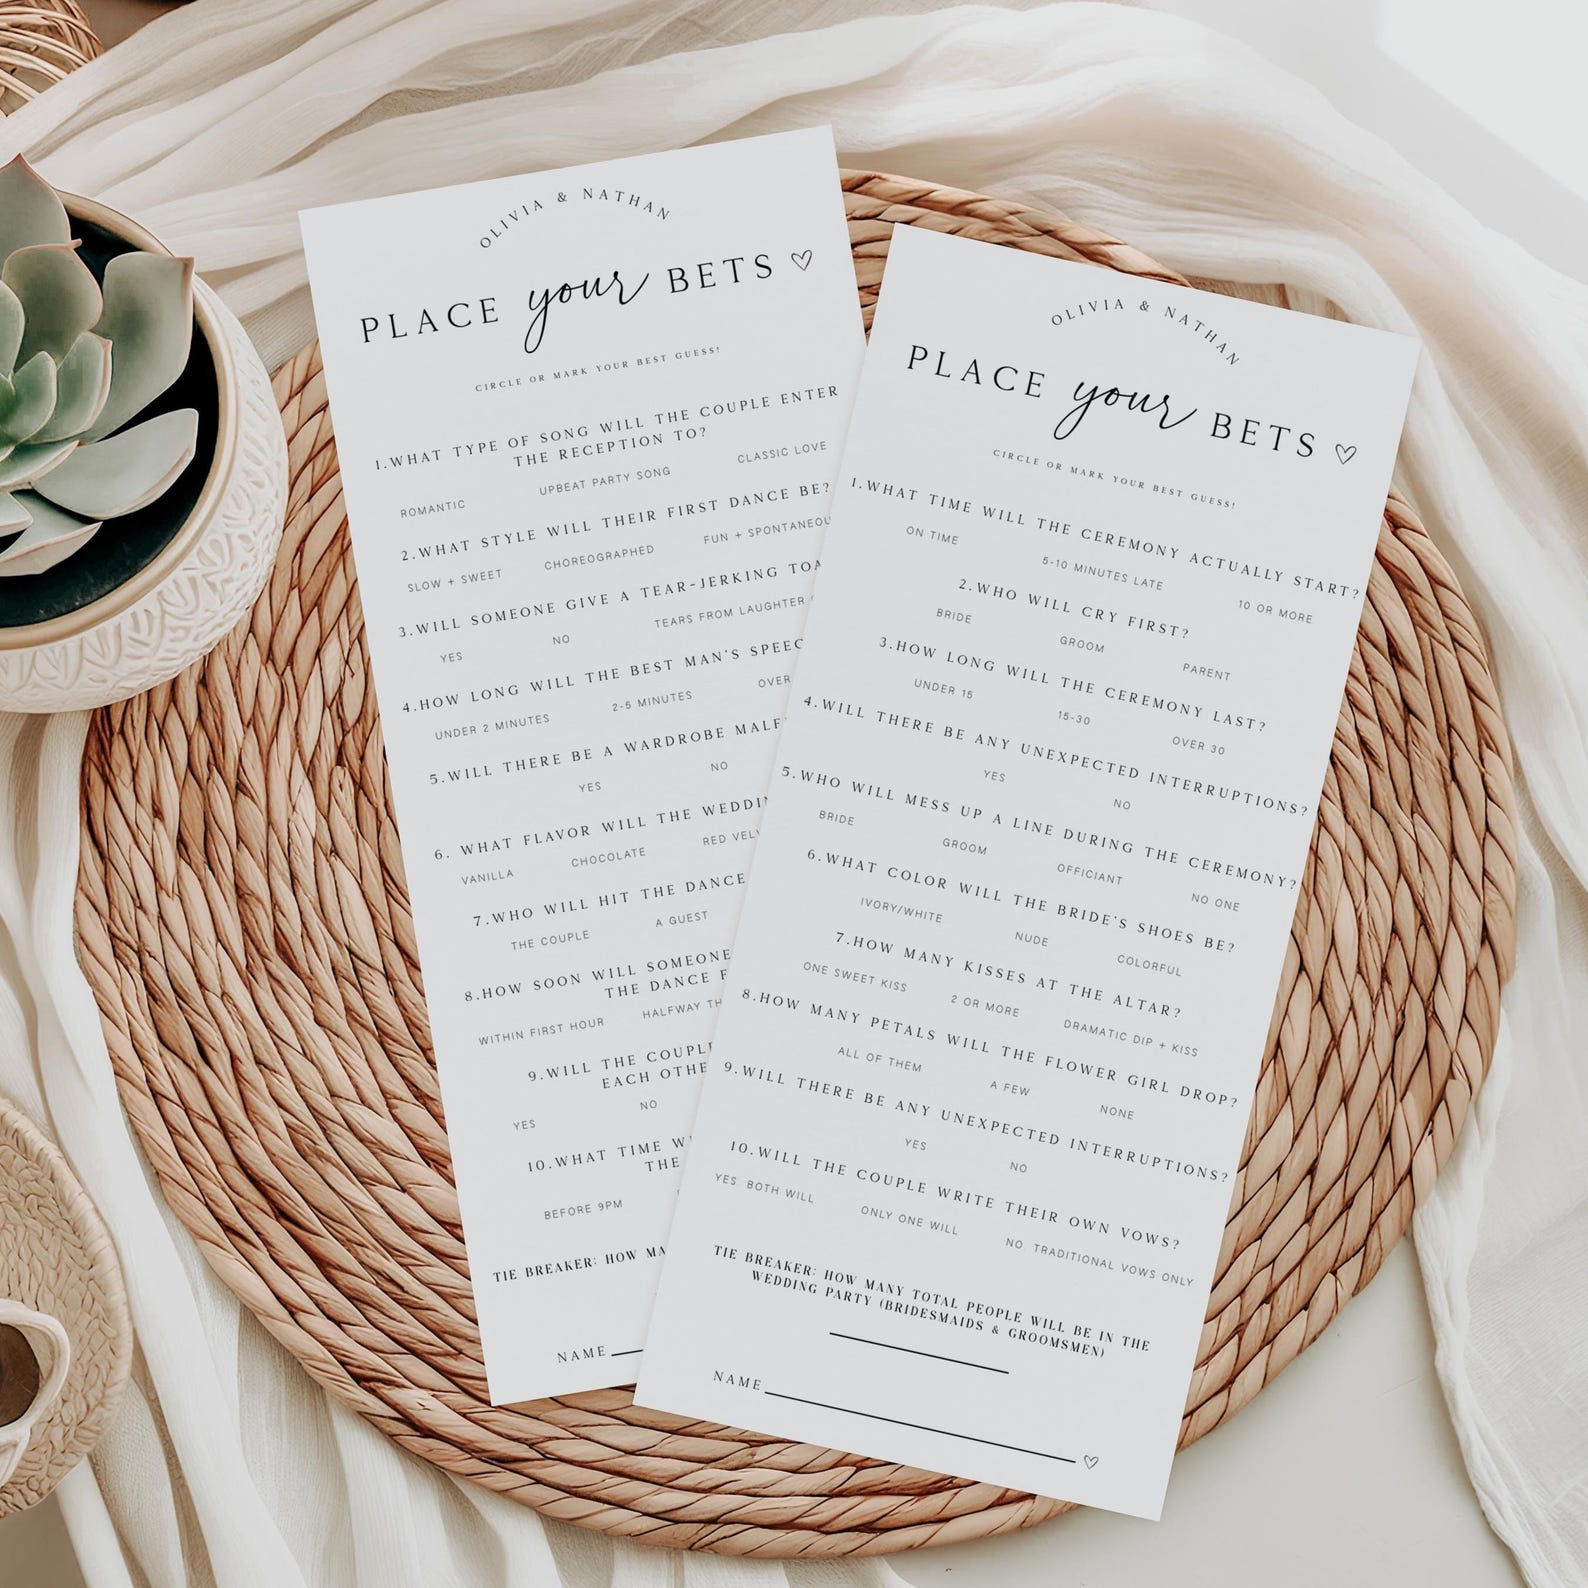 OLIVIA & NATHAN
PLACE your BETS
CIRCLE OR MARK YOUR BEST GUESS!
1.WHAT TYPE OF SONG WILL THE COUPLE ENTER
THE RECEPTION TO?
ROMANTIC UPBEAT PARTY SONG CLASSIC LOVE
2.WHAT STYLE WILL THEIR FIRST DANCE BE?
SLOW + SWEET CHOREOGRAPHED FUN +
3.WILL SOMEONE GIVE A TEAR-JERKING
YES NO TEARS FROM LAUGHTER
4.HOW LONG WILL THE BEST MAN'S
UNDER 2 MINUTES 2-5 MINUTES OVER
5.WILL THERE BE A WARDROBE
YES NO
6. WHAT FLAVOR WILL THE
VANILLA CHOCOLATE RED
7.WHO WILL HIT THE DANCE
THE COUPLE A GUEST
8.HOW SOON WILL SOMEONE
THE DANCE
WITHIN FIRST HOUR HALFWAY
9.WILL THE
EACH
YES NO
10.WHAT TIME
THE
BEFORE 9PM
TIE BREAKER: HOW
NAME
OLIVIA & NATHAN
PLACE your BETS
CIRCLE OR MARK YOUR BEST GUESS!
1.WHAT TIME WILL THE CEREMONY ACTUALLY START?
ON TIME 5-10 MINUTES LATE 10 OR MORE
2.WHO WILL CRY FIRST?
BRIDE GROOM PARENT
3.HOW LONG WILL THE CEREMONY LAST?
UNDER 15 15-30 OVER 30
4.WILL THERE BE ANY UNEXPECTED INTERRUPTIONS?
YES NO
5.WHO WILL MESS UP A LINE DURING THE CEREMONY?
BRIDE GROOM OFFICIANT NO ONE
6.WHAT COLOR WILL THE BRIDE'S SHOES BE?
IVORY/WHITE NUDE COLORFUL
7.HOW MANY KISSES AT THE ALTAR?
ONE SWEET KISS 2 OR MORE DRAMATIC DIP + KISS
8.HOW MANY PETALS WILL THE FLOWER GIRL DROP?
ALL OF THEM A FEW NONE
9.WILL THERE BE ANY UNEXPECTED INTERRUPTIONS?
YES NO
10.WILL THE COUPLE WRITE THEIR OWN VOWS?
YES BOTH WILL ONLY ONE WILL NO TRADITIONAL VOWS ONLY
TIE BREAKER: HOW MANY TOTAL PEOPLE WILL BE IN THE
WEDDING PARTY (BRIDESMAIDS & GROOMSMEN)
NAME